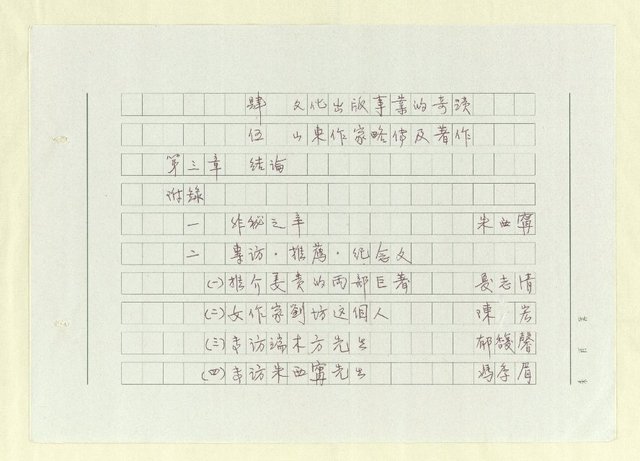 肆 文化出版事業的奇蹟
伍 山東作家略傳及著作
第三章 結論
附錄
一 作秘之辛 朱西甯
二 專訪·推薦·紀念文
(一)推介姜貴的兩部巨著 夏志清
(二)女作家劉枋這個人 陳 岩
(三)專訪端木方先生 郁馥馨
(四)專訪朱西甯先生 馮季眉